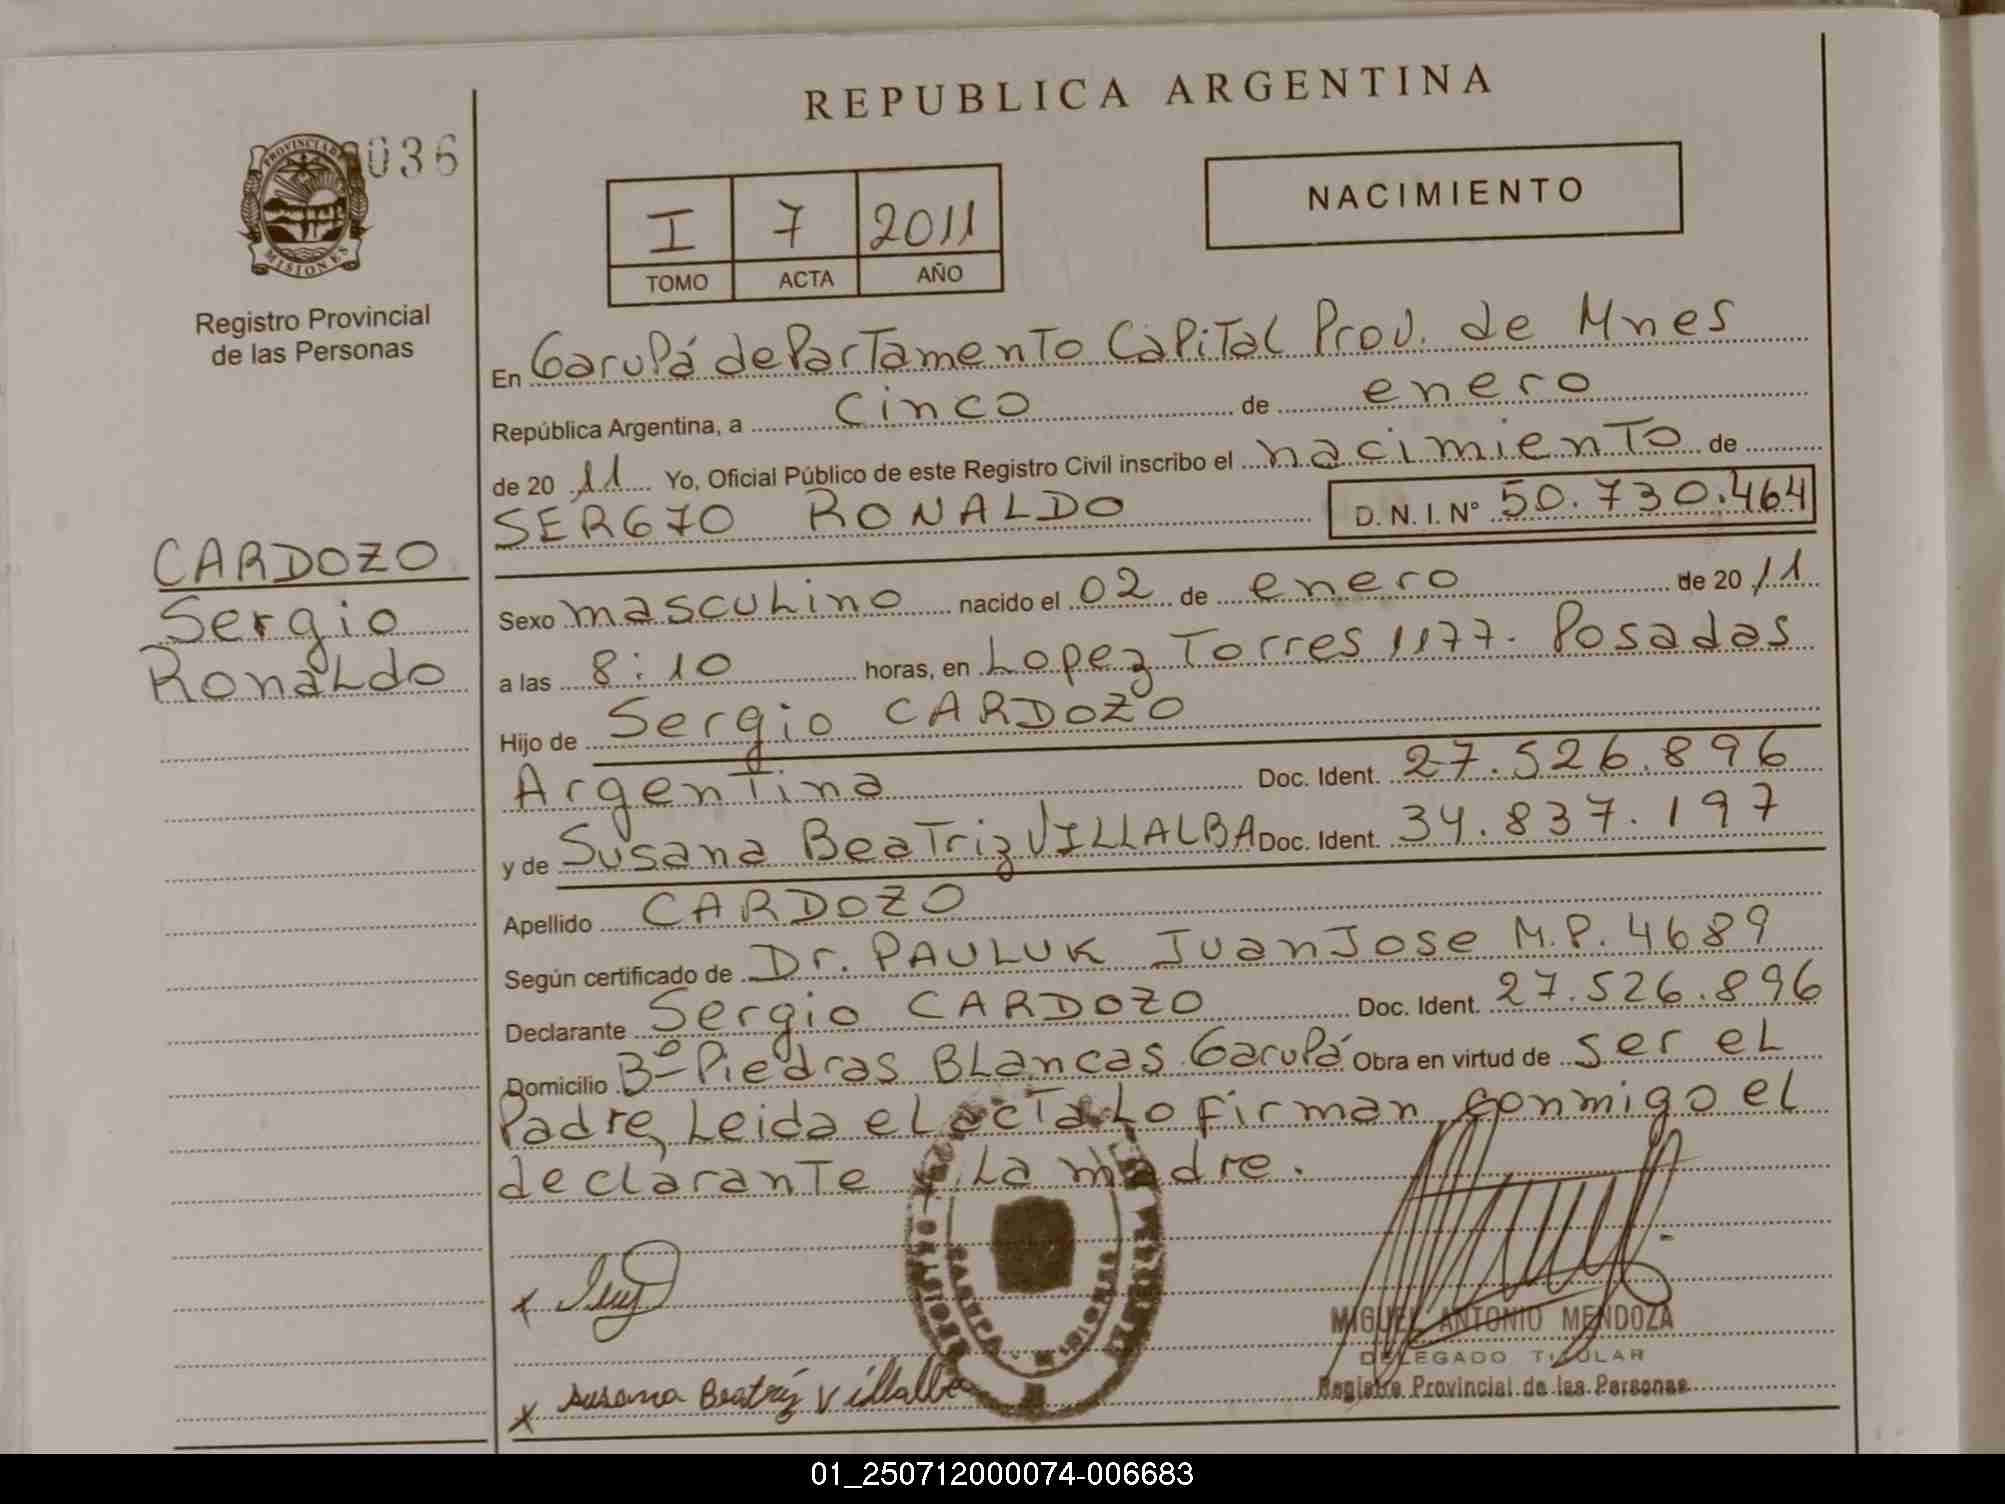 REPUBLICA ARGENTINA
PROVINCIA DE
MISIONES
036
Registro Provincial
de las Personas
I 7 2011
TOMO ACTA AÑO
NACIMIENTO
En Garupá departamento Capital Prov. de Mnes
República Argentina, a cinco de enero
de 2011 Yo, Oficial Público de este Registro Civil inscribo el nacimiento de
SERGIO RONALDO D. N. I. Nº 50.730.464
CARDOZO
Sergio
Ronaldo
Sexo masculino nacido el 02 de enero de 2011
a las 8:10 horas, en Lopez Torres 1177. Posadas
Hijo de Sergio CARDOZO
Argentina Doc. Ident. 27.526.896
y de Susana Beatriz VILLALBA Doc. Ident. 34.837.197
Apellido CARDOZO
Según certificado de Dr. PAULUK Juan Jose M.P. 4689
Declarante Sergio CARDOZO Doc. Ident. 27.526.896
Domicilio Bº Piedras Blancas Garupá Obra en virtud de ser el
Padre, Leida el acta Lo firman conmigo el
declarante y La madre.
MIGUEL ANTONIO MENDOZA
DELEGADO TITULAR
Registro Provincial de las Personas
x Susana Beatriz Villalba
01_250712000074-006683